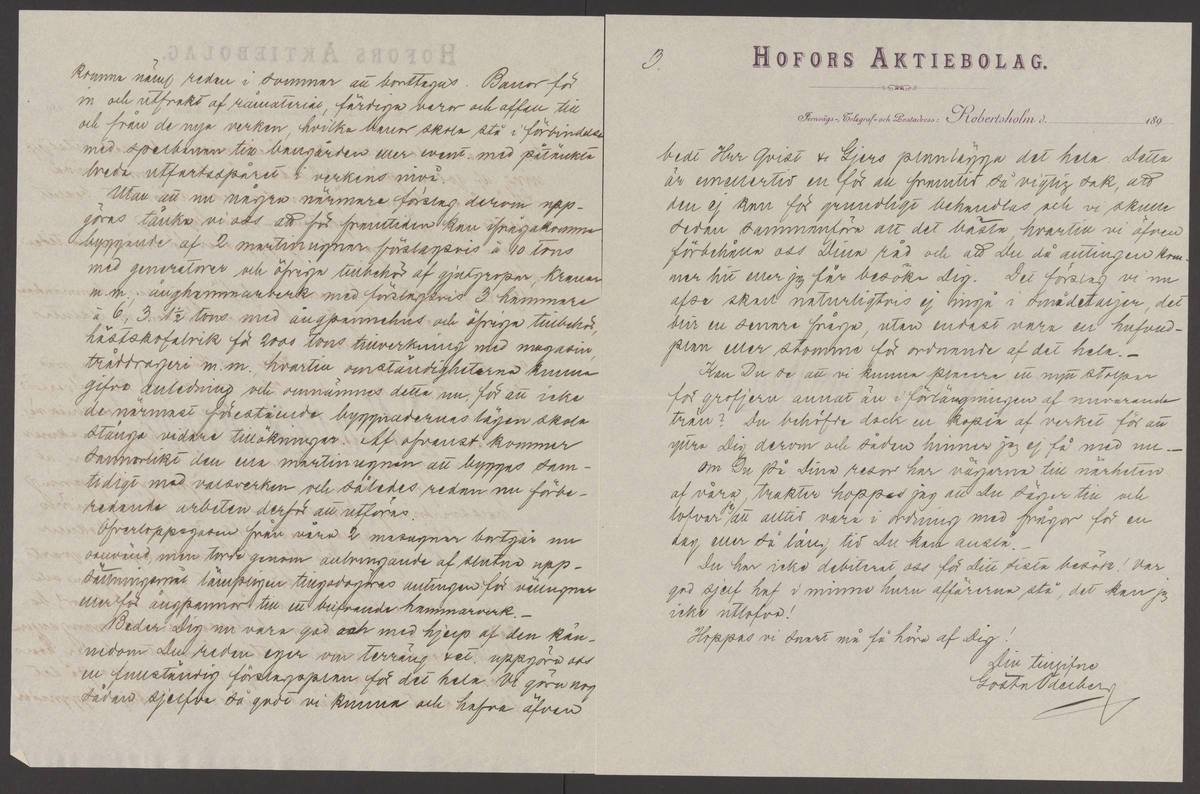 komma nämg redan i sommar att borttagas. Banor för
in och utfrakt af råmaterial, färdiga varor och affall till
och från de nya verken, hvilka banor skola stå i förbindelse
med spelbanan till bangården eller event. med påtänkta
breda utfartsspåret i verkens nivå
Utan att nu några närmare förslag derom upp-
göras tänka vi oss att för framtiden kan ifrågakomma
byggande af 2 martinugnar förslagsvis à 10 tons
med generatorer och öfriga tillbehör af gjutgropar, kranar
m.m. ånghammarverk med förslagsvis 3 hammare
à 6, 3, 1½ tons med ångpannehus och öfriga tillbehör,
hästskofabrik för 2000 tons tillverkning med magasin,
tråddrageri m.m. hvartill omständigheterna kunna
gifva anledning och omnämnes detta nu, för att icke
de närmast förestående byggnadernas lägen skola
stänga vidare tillökningar. Af ofvanst. kommer
sannolikt den ena martinugnen att byggas sam-
tidigt med valsverken och således redan nu förbe-
redande arbeten derför att utföras.
Öfverloppsgasen från våra 2 masugnar bortgår nu
oanvänd, men torde genom anbringande af slutna upp-
sättningsmål lämpligen tillgodogöras antingen för vällugnar
eller för ångpannor till ett blifvande hammarverk.—
Beder Dig nu vara god och med hjelp af den kän-
nedom Du redan eger om terräng &ct. uppgöra oss
en fullständig förslagsplan för det hela. Vi göra nog
sådan sjelfva så godt vi kunna och hafva äfven
3
HOFORS AKTIEBOLAG.
Jernvägs-, Telegraf- och Postadress: Robertsholm d. 189
bedt Herr Qvist & Gjers planlägga det hela. Detta
är emellertid en för all framtid så vigtig sak, att
den ej kan för grundligt behandlas och vi skulle
sedan sammanföra allt det bästa, hvartill vi äfven
förbehålla oss Dina råd och att Du då antingen kom-
mer hit eller jag får besöka Dig. Det förslag vi nu
afse skall naturligtvis ej ingå i smådetaljer, det
blir en senare fråga, utan endast vara en hufvud-
plan eller stomme för ordnande af det hela.—
Kan Du se att vi kunna placera ett nytt stolpar
för grofjern annat än i förlängningen af nuvarande
trän? Du behöfde dock en kopia af verket för att
yttra Dig derom och sådan hinner jag ej få med nu.—
Om Du på Dina resor har vägarna till närheten
af våra trakter hoppas jag att Du säger till och
lofvar jag att alltid vara i ordning med frågor för en
dag eller så lång tid Du kan anslå.—
Du har icke debiterat oss för Ditt sista besök! Var
god sjelf haf i minne huru affärerna stå, det kan jag
icke utlofva!
Hoppas vi snart må få höra af Dig!
Din tillgifne
Gösta Odelberg